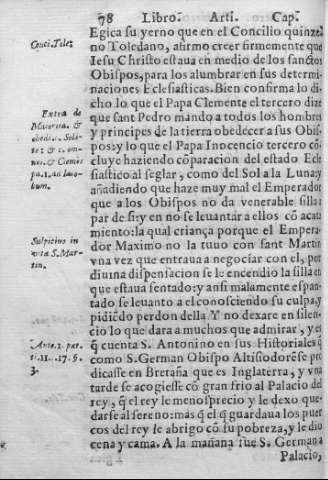 78 Libro. Arti. Cap.
Egica su yerno que en el Concilio quinze
no Toledano, afirmo creer firmemente que
Iesu Christo estaua en medio de los sanctos
Obispos, para los alumbrar en sus determi-
naciones Eclesiasticas. Bien confirma lo di
cho lo que el Papa Clemente el tercero dize
que sant Pedro mando a todos los hombres
y principes de la tierra obedecer a sus Obis-
pos: y lo que el Papa Inocencio tercero cō
cluye haziendo cōparacion del estado Ecle
siastico al seglar, como del Sol a la Luna: y
añadiendo que haze muy mal el Emperador
que a los Obispos no da venerable silla a
par de si: y en no se leuantar a ellos cō acata
miento: la qual criança porque el Empera-
dor Maximo no la tuuo con sant Martin
vna vez que entraua a negociar con el, por
diuina dispensacion se le encendio la silla en
que estaua sentado: y ansi malamente espan-
tado se leuanto a el conosciendo su culpa, y
pidiēdo perdon della Y no dexare en silen-
cio lo que dara a muchos que admirar, y es
q̄ cuenta S. Antonino en sus Historiales q̄
como S. German Obispo Altisiodorēse pre
dicasse en Bretaña que es Inglaterra, y vna
tarde se acogiesse cō gran frio al Palacio del
rey, q̄ el rey le menosprecio y le dexo que-
darse al sereno: mas q̄ el q̄ guardaua los puer
cos del rey le abrigo cō su pobreza, y le dio
cena y cama. A la mañana fue S. German a
Palacio,
Conci. Tole.
Extra de
Maiorita. &
obedi. c. Soli-
te: & c. omn-
nes. & Clemēs
pa. 1. ad Iaco-
bum.
Sulpitius in
vita S. Mar-
tin.
Anto. 2. par.
ti. 11. 17. §.
3.